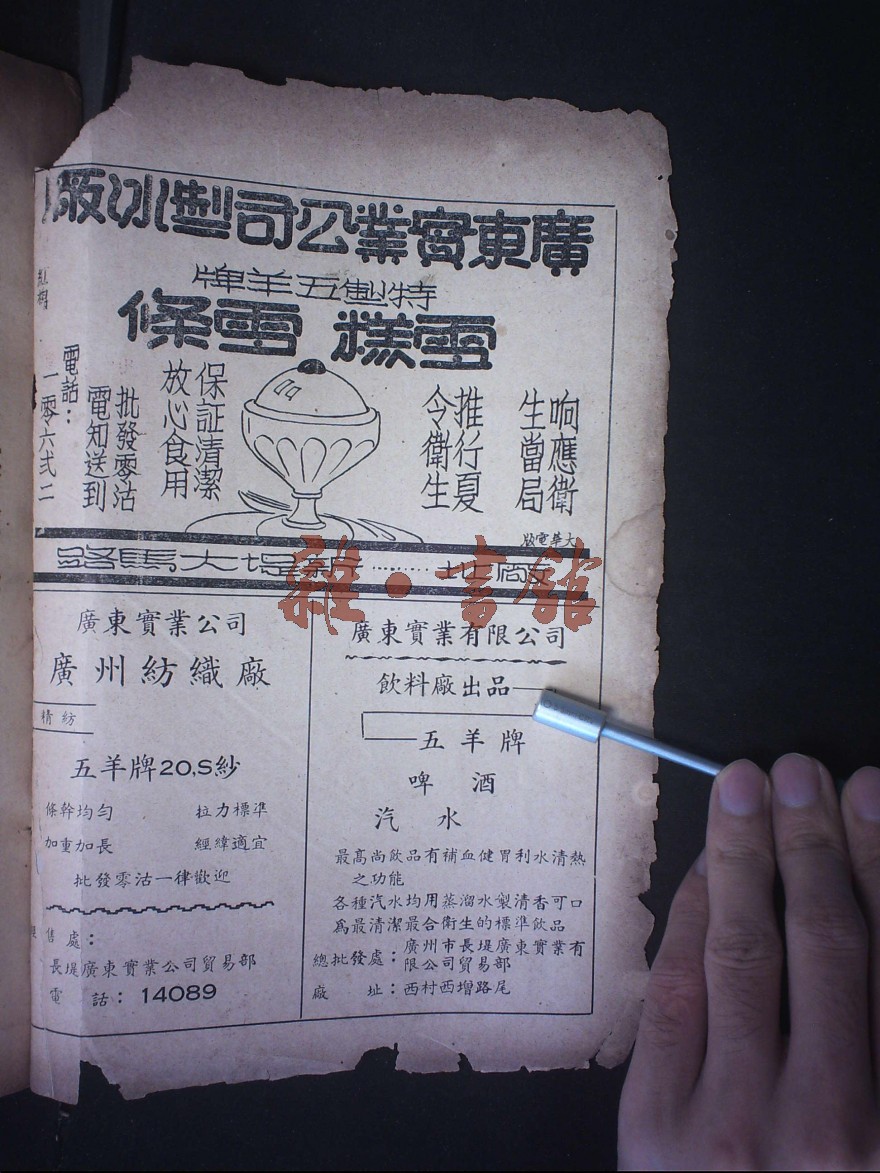 廣東實業公司製冰廠
特製五羊牌
雪糕 雪條
响應衛
生當局
推行夏
令衛生
保証清潔
放心食用
批發零沽
電知送到
電話：
一零六弍二
大華電版
廠址………新堤大馬路
雜·書館
廣東實業有限公司
飲料廠出品
五羊牌
啤酒
汽水
最高尚飲品有補血健胃利水清熱
之功能
各種汽水均用蒸溜水製清香可口
爲最清潔最合衛生的標準飲品
總批發處：廣州市長堤廣東實業有
限公司貿易部
廠址：西村西增路尾
廣東實業公司
廣州紡織廠
精紡
五羊牌20,S紗
條幹均勻 拉力標準
加重加長 經緯適宜
批發零沽一律歡迎
售處：
長堤廣東實業公司貿易部
電話：14089